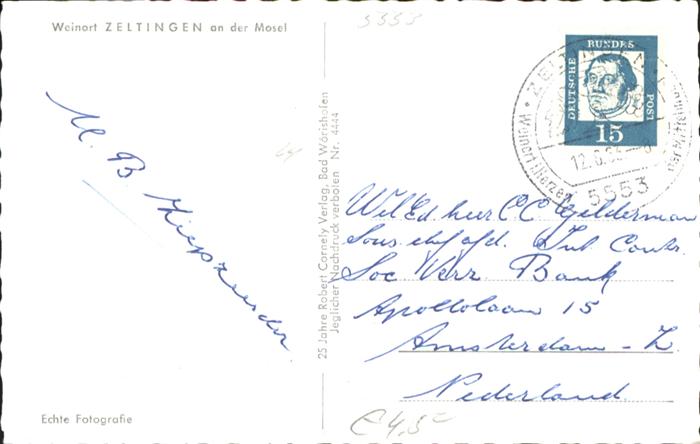 Weinort ZELTINGEN an der Mosel
5553
M. B.
Echte Fotografie
25 Jahre Robert Cornely Verlag, Bad Wörishofen
Jeglicher Nachdruck verboten Nr. 4444
DEUTSCHE BUNDES POST
15
ZELTINGEN
Weinort im Herzen
12.6.65
5553
Wel Ed. heer C.C. Gelderman
Sous chef afd. Int. Contr.
Soc Verz. Bank
Apollolaan 15
Amsterdam - Z
Nederland
€ 4,5